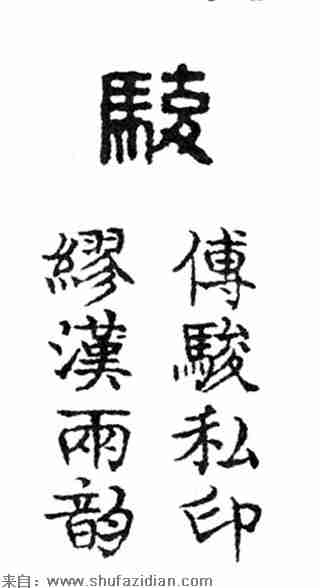 駿
傅駿私印
繆漢兩韵
来自：www.shufazidian.com